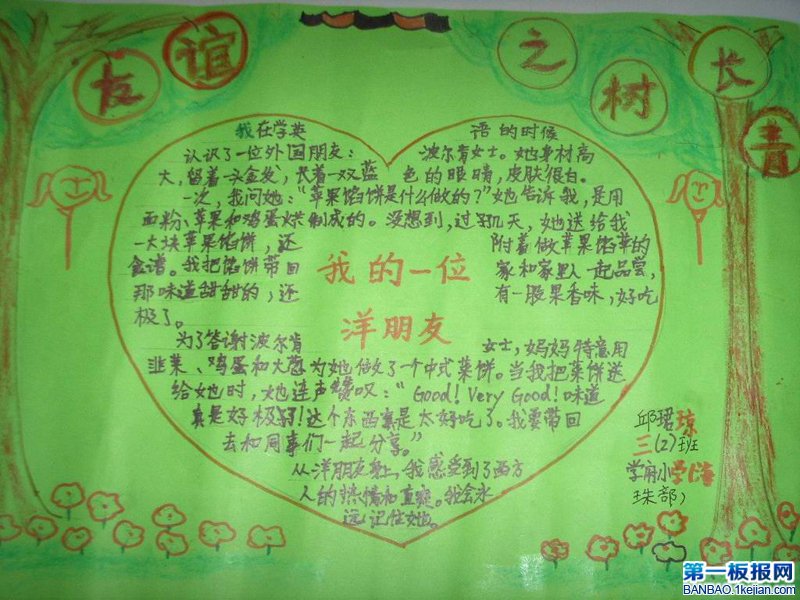 友谊之树长青
我在学英语的时候
认识了一位外国朋友：波尔肯女士。她身材高
大，留着一头金发，长着一双蓝色的眼睛，皮肤很白。
一次，我问她：“苹果馅饼是什么做的？”她告诉我，是用
面粉、苹果和鸡蛋烘制成的。没想到，过了几天，她送给我
一大块苹果馅饼，还附着做苹果馅苹的
食谱。我把馅饼带回家和家里人一起品尝，
那味道甜甜的，还有一股果香味，好吃
极了。
我的一位
洋朋友
为了答谢波尔肯女士，妈妈特意用
韭菜、鸡蛋和大葱为她做了一个中式菜饼。当我把菜饼送
给她时，她连声赞叹：“Good！Very Good！味道
真是好极了！这个东西真是太好吃了。我要带回
去和同事们一起分享。”
从洋朋友身上，我感受到了西方
人的热情和直爽。我会永
远记住她。
邱珺琼
三(2)班
学府小学
珠部）
第一板报网
BANBAO.1kejian.com